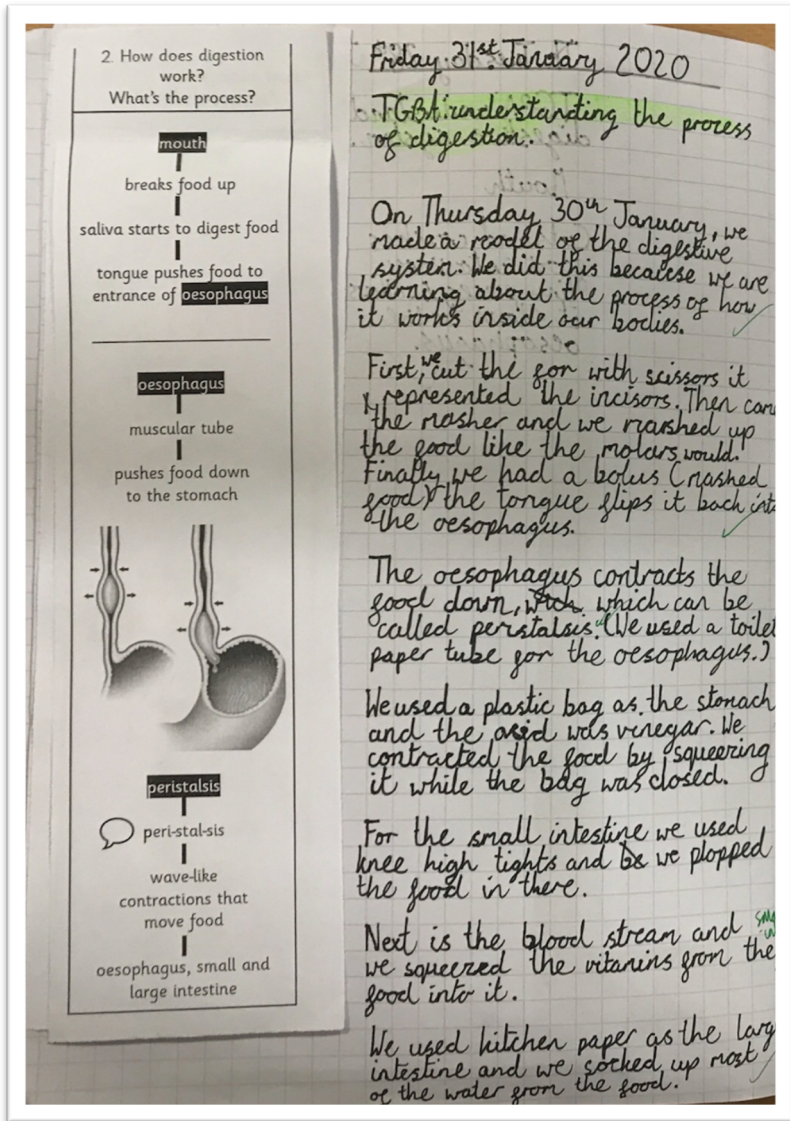 2. How does digestion
work?
What's the process?
mouth
breaks food up
saliva starts to digest food
tongue pushes food to
entrance of oesophagus
oesophagus
muscular tube
pushes food down
to the stomach
peristalsis
peri-stal-sis
wave-like
contractions that
move food
oesophagus, small and
large intestine
Friday 31st January 2020
TGBAt: understanding the process
of digestion.
On Thursday 30th January, we
made a model of the digestive
system. We did this because we are
learning about the process of how
it works inside our bodies.
First, we cut the for with scissors it
represented the incisors. Then cam
the masher and we mashed up
the food like the molars would.
Finally we had a bolus (mashed
food) the tongue flips it back int
the oesophagus.
The oesophagus contracts the
food down, which can be
called peristalsis. (We used a toilet
paper tube for the oesophagus.)
We used a plastic bag as the stomach
and the acid was vinegar. We
contracted the food by squeezing
it while the bag was closed.
For the small intestine we used
knee high tights and we plopped
the food in there.
Next is the blood stream and
we squeezed the vitamins from the
food into it.
We used kitchen paper as the larg
intestine and we socked up most
of the water from the food.